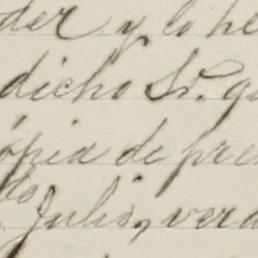 der y lo he
dicho Sr. qu
ópia de pre
do
Julio, verd